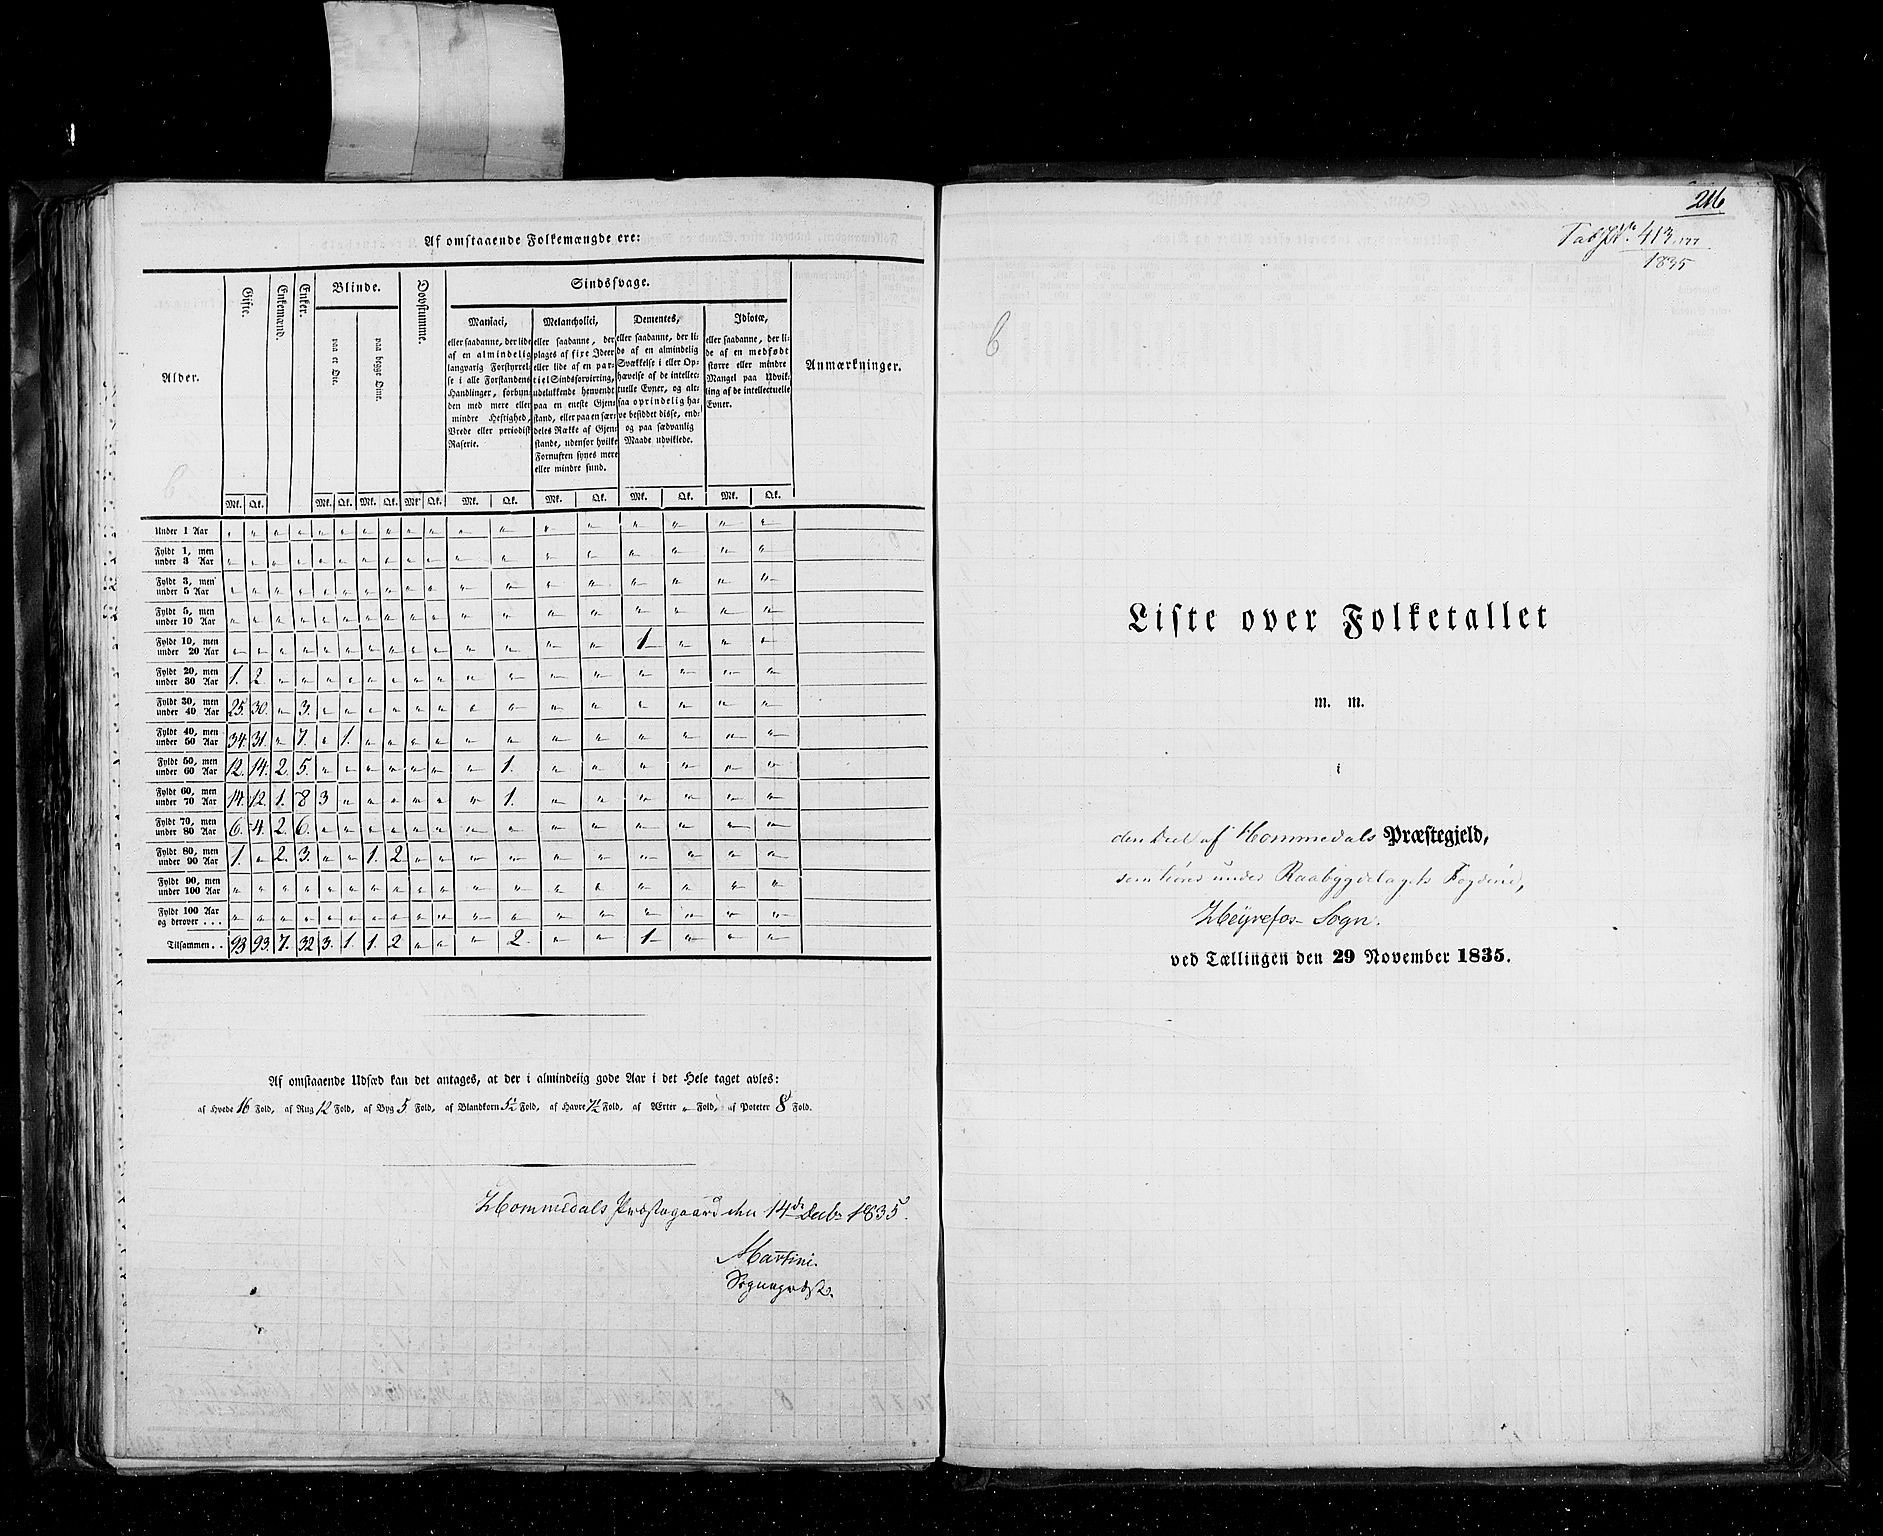 Af omstaaende Folkemængde ere:
Alder.
Gifte.
Enkemænd.
Enker.
Blinde.
paa et Øie.
paa begge Øine.
Døvstumme.
Sindssvage.
Maniaci,
eller saadanne, der lide
af en almindelig
langvarig Forstyrrel-
se i alle Forstandens
Handlinger, forbun-
den med mere eller
mindre Heftighed,
Vrede eller periodisk
Raserie.
Melancholici,
eller saadanne, der
plages af fixe Ideer
eller lide af en par-
tiel Sindsforvirring,
udelukkende henvendt
paa en eneste Gjen-
stand, eller paa en sær-
deles Række af Gjen-
stande, udenfor hvilke
Fornuften synes mere
eller mindre sund.
Dementes,
eller saadanne, der li-
de af en almindelig
Svækkelse i eller Op-
hævelse af de intellec-
tuelle Evner, og alt-
saa oprindelig ha-
ve besiddet disse, end-
og paa sædvanlig
Maade udviklede.
Idiotæ,
eller saadanne, der li-
de af en medfødt
større eller mindre
Mangel paa Udvik-
ling af de intellectuelle
Evner.
Anmærkninger.
Mk. Qk. Mk. Qk. Mk. Qk. Mk. Qk. Mk. Qk. Mk. Qk. Mk. Qk. Mk. Qk.
Under 1 Aar " " " " " " " " " " " " " " " " " "
Fyldt 1, men
under 3 Aar " " " " " " " " " " " " " " " " " "
Fyldt 3, men
under 5 Aar " " " " " " " " " " " " " " " " " "
Fyldt 5, men
under 10 Aar " " " " " " " " " " " " " " " " " "
Fyldt 10, men
under 20 Aar " " " " " " " " " " " " " " 1 " " "
Fyldt 20, men
under 30 Aar 1. 2 " " " " " " " " " " " " " " " "
Fyldt 30, men
under 40 Aar 25. 30. " 3. " " " " " " " " " " " " " "
Fyldt 40, men
under 50 Aar 34. 31. " 7. " 1. " " " " " " " " " " " "
Fyldt 50, men
under 60 Aar 12. 14. 2. 5. " " " " " " " 1. " " " " " "
Fyldt 60, men
under 70 Aar 14. 12. 1. 8 3 " " " " " " 1. " " " " " "
Fyldt 70, men
under 80 Aar 6. 4. 2. 6. " " " " " " " " " " " " " "
Fyldt 80, men
under 90 Aar 1. " 2. 3. " " 1. 2 " " " " " " " " " "
Fyldt 90, men
under 100 Aar " " " " " " " " " " " " " " " " " "
Fyldt 100 Aar
og derover . . . " " " " " " " " " " " " " " " " " "
Tilsammen . . 93 93. 7. 32 3. 1. 1. 2 " " " 2. " " 1 " " "
Af omstaaende Udsæd kan det antages, at der i almindelig gode Aar i det Hele taget avles:
af Hvede 16 Fold, af Rug 12 Fold, af Byg 5 Fold, af Blandkorn 5½ Fold, af Havre 7½ Fold, af Ærter " Fold, af Poteter 8 Fold.
Hommedals Præstegaard den 14de Decbr 1835.
Martini.
Sognepræst.
216
1835
6
Liste over Folketallet
m. m.
i
den Deel af Hommedals Præstegjeld,
som hører under Raabygdelagets Fogderie,
Heyrefos Sogn.
ved Tællingen den 29 November 1835.